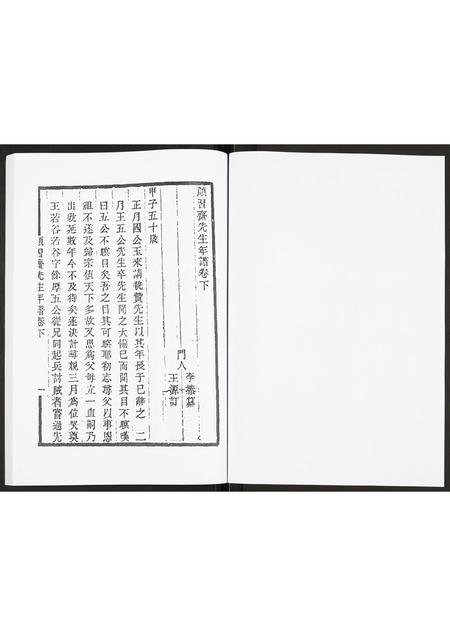 顏習齋先生年譜卷下
門人
李塨纂
王源訂
甲子五十歲
正月國公玉來請執贄先生以其年長于己辭之 二
月王五公先生卒先生聞之大慟已而聞其目不瞑嘆
曰五公不瞑目矣吾之目其可瞑耶勒志尋父以事恩
祖不遂及歸宗值天下多故又思爲父母立一血嗣乃
出數延數年今不及待矣遂決計尋親三月爲位哭奠
王若谷若谷字餘厚五公從兄同起兵討賊者嘗過先
顏習齋先生年譜卷下
一